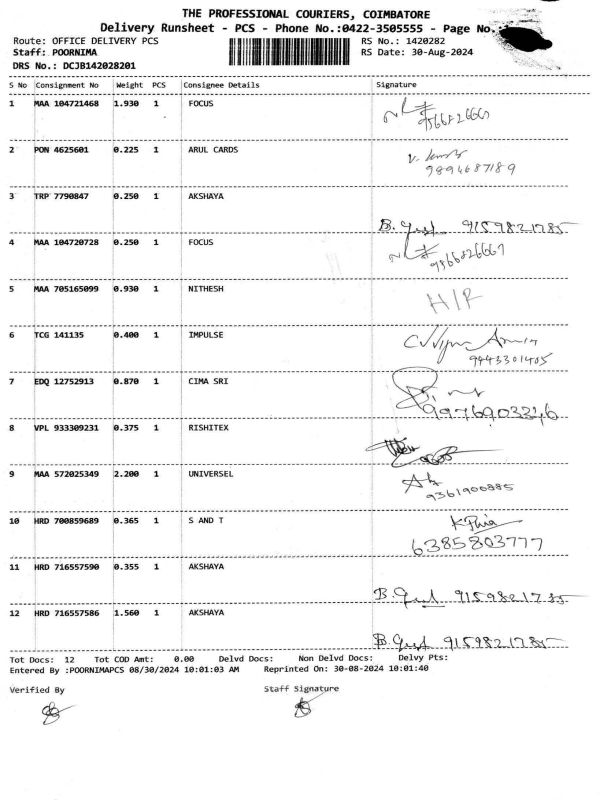 THE PROFESSIONAL COURIERS, COIMBATORE
Delivery Runsheet - PCS - Phone No.:0422-3505555 - Page No.:
Route: OFFICE DELIVERY PCS RS No.: 1420282
Staff: POORNIMA RS Date: 30-Aug-2024
DRS No.: DCJB142028201
S No Consignment No Weight PCS Consignee Details Signature
1 MAA 104721468 1.930 1 FOCUS
2 PON 4625601 0.225 1 ARUL CARDS
9894687189
3 TRP 7790847 0.250 1 AKSHAYA
B. 9159821785
4 MAA 104720728 0.250 1 FOCUS
5 MAA 705165099 0.930 1 NITHESH
H/R
6 TCG 141135 0.400 1 IMPULSE
9443301405
7 EDQ 12752913 0.870 1 CIMA SRI
8 VPL 933309231 0.375 1 RISHITEX
9 MAA 572025349 2.200 1 UNIVERSEL
9361900885
10 HRD 700859689 0.365 1 S AND T
6385803777
11 HRD 716557590 0.355 1 AKSHAYA
B.
12 HRD 716557586 1.560 1 AKSHAYA
B. 9159821785
Tot Docs: 12 Tot COD Amt: 0.00 Delvd Docs: Non Delvd Docs: Delvy Pts:
Entered By :POORNIMAPCS 08/30/2024 10:01:03 AM Reprinted On: 30-08-2024 10:01:40
Verified By Staff Signature